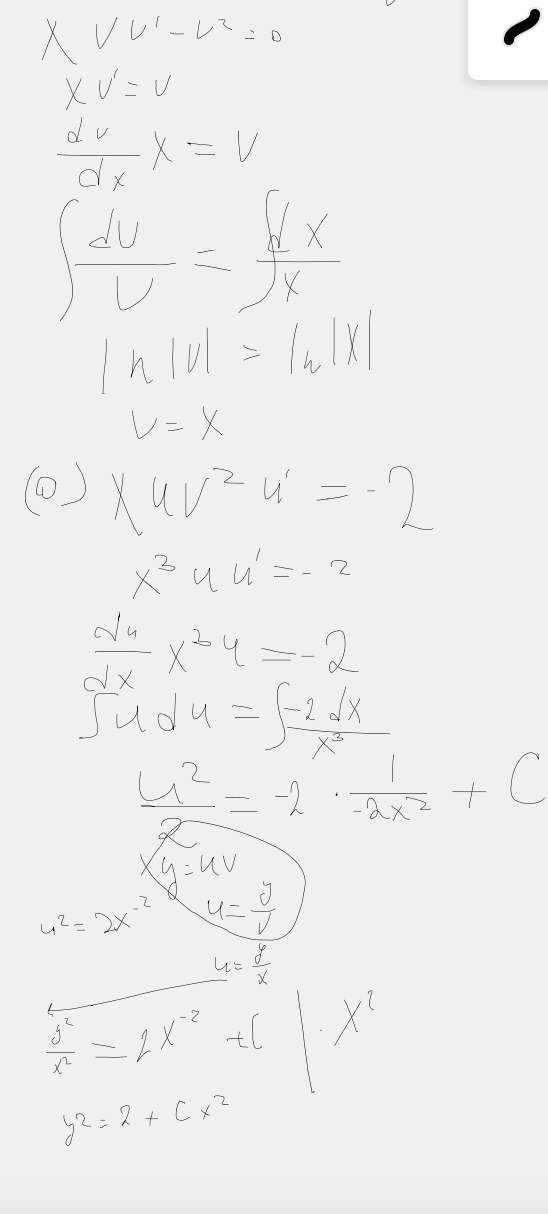 x v v' - v² = 0
x v' = v
dv/dx x = v
∫ dv/v = ∫ dx/x
ln |v| = ln |x|
v = x
(a) x u v² u' = -2
x³ u u' = -2
du/dx x³ u = -2
∫ u du = ∫ -2 dx / x³
u²/2 = -2 · 1/(-2x²) + C
xy = uv
u = y/v
u² = 2x⁻²
u = y/x
y²/x² = 2x⁻² + C | · x²
y² = 2 + C x²